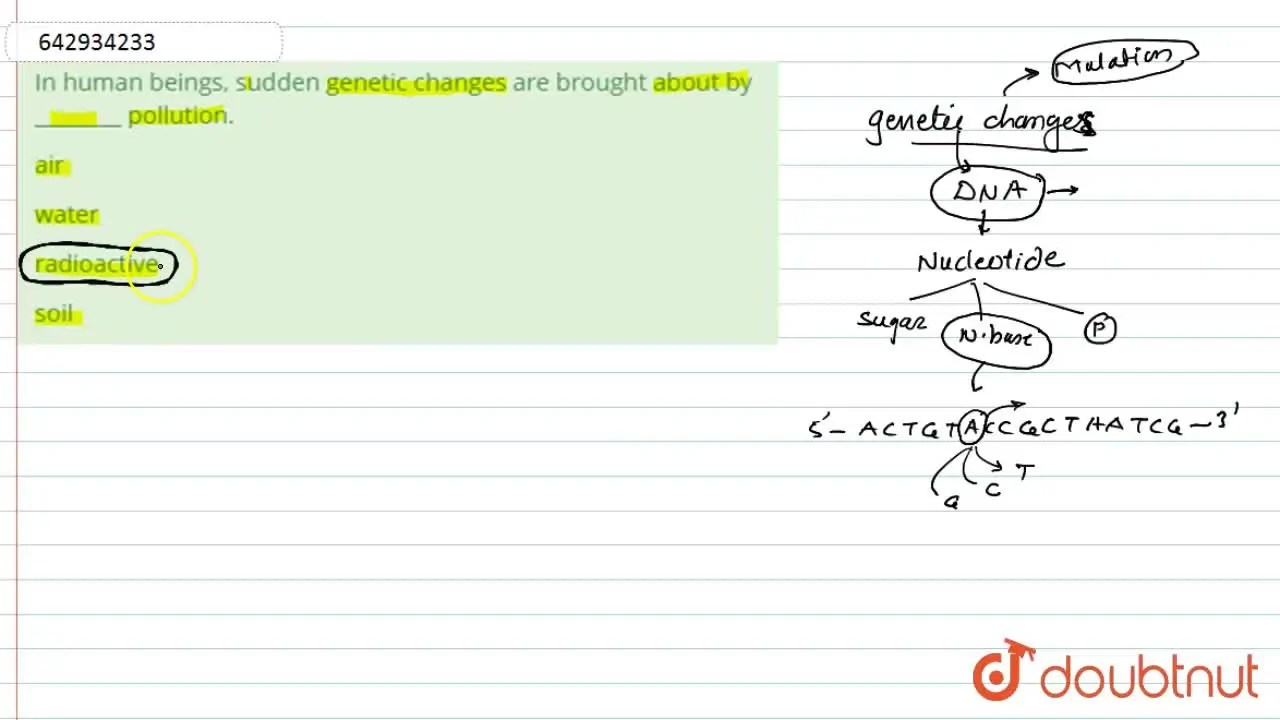 642934233
In human beings, sudden genetic changes are brought about by
________ pollution.
air
water
radioactive
soil
Mutation
genetic changes
DNA
Nucleotide
sugar N.base P
5'- ACTGTACCGCTAATCG-3'
G C T
doubtnut